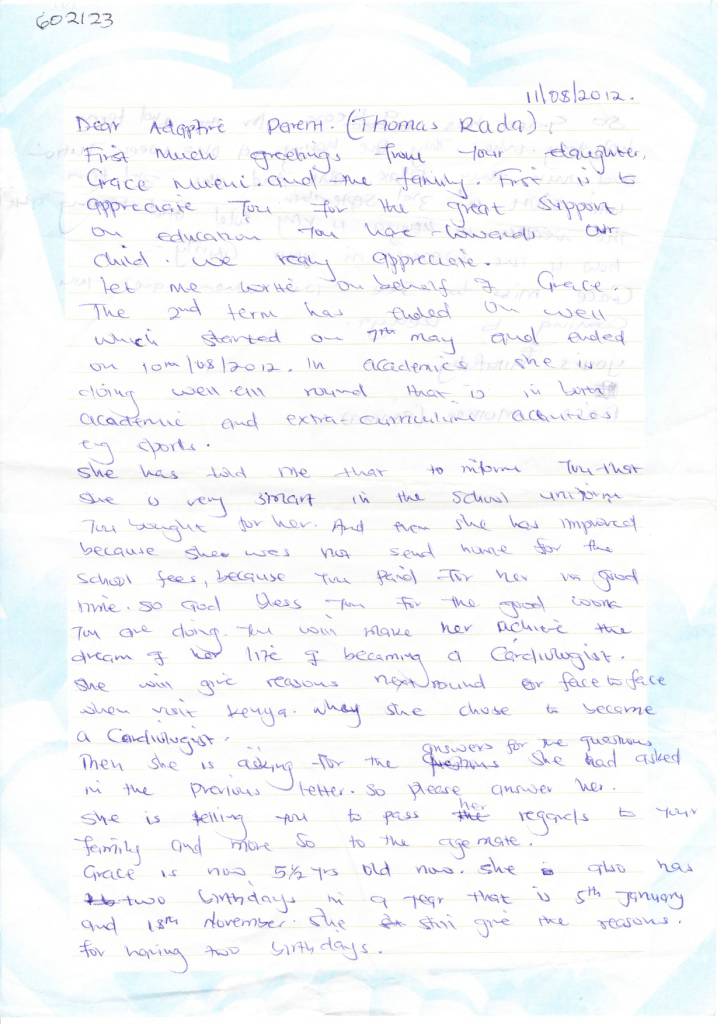 602123
11/08/2012.
Dear Adaptive Parent. (Thomas Rada),
First Much greetings from your daughter,
Grace Mueni. and the family. First is to
appreciate You for the great support
on education You have towards our
child. We really appreciate.
Let me write on behalf of Grace.
The 2nd term has ended on well
which started on 7th may and ended
on 10th/08/2012. In academics she is
doing well all round that is in both
academic and extra-curriculum activities
eg sports.
She has told me that to inform You that
she is very smart in the school uniform
You bought for her. And even she has improved
because she was not send home for the
school fees, because You paid for her in good
time. So God bless You for the good work
You are doing. You will make her achieve the
dream of her life of becaming a Cardiologist.
She will give reasons next round or face to face
when visit Kenya. why she chose to became
a Cardiologist.
Then she is asking for the answers for the questions she had asked
in the previous letter. So please answer her.
She is telling you to pass her regards to your
family and more so to the agemate.
Grace is now 5½ yrs old now. She also has
two birthdays in a year that is 5th January
and 18th November. She still give the reasons.
for having two birthdays.